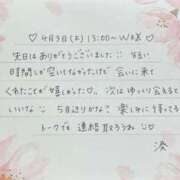 ♡ 4月3日(木) 13:00〜 W様 ♡
先日はありがとうございました♡ 短い
時間しか空いてなかったけど 会いに来て
くれたことが嬉しかった♡。次はゆっくり会えると
いいな♡ 5月辺りかな? 楽しみに待ってる
トークでも 連絡取ろうね ♡
湊